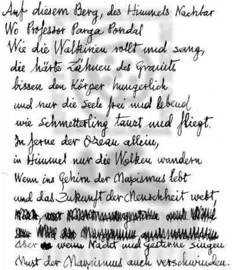 Auf diesem Berg, des Himmels Nachbar
Wo Professor Parga Pondal
Wie die Walkinen rollt und sang,
die härte Zähnen des Graniets
bissen den Körper hungerlich
und nur die Seele frei und lebend,
wie Schmetterling tanzt und fliegt.
In ferne der Ozean allein,
in Himmel nur die Wolken wandern
Wenn ins Gehirn der Marxismus lebt
und das Zukunft der Menschheit webt,
Aber wenn Nacht und Gestirne singen
Must der Marxismus auch verschwinden.